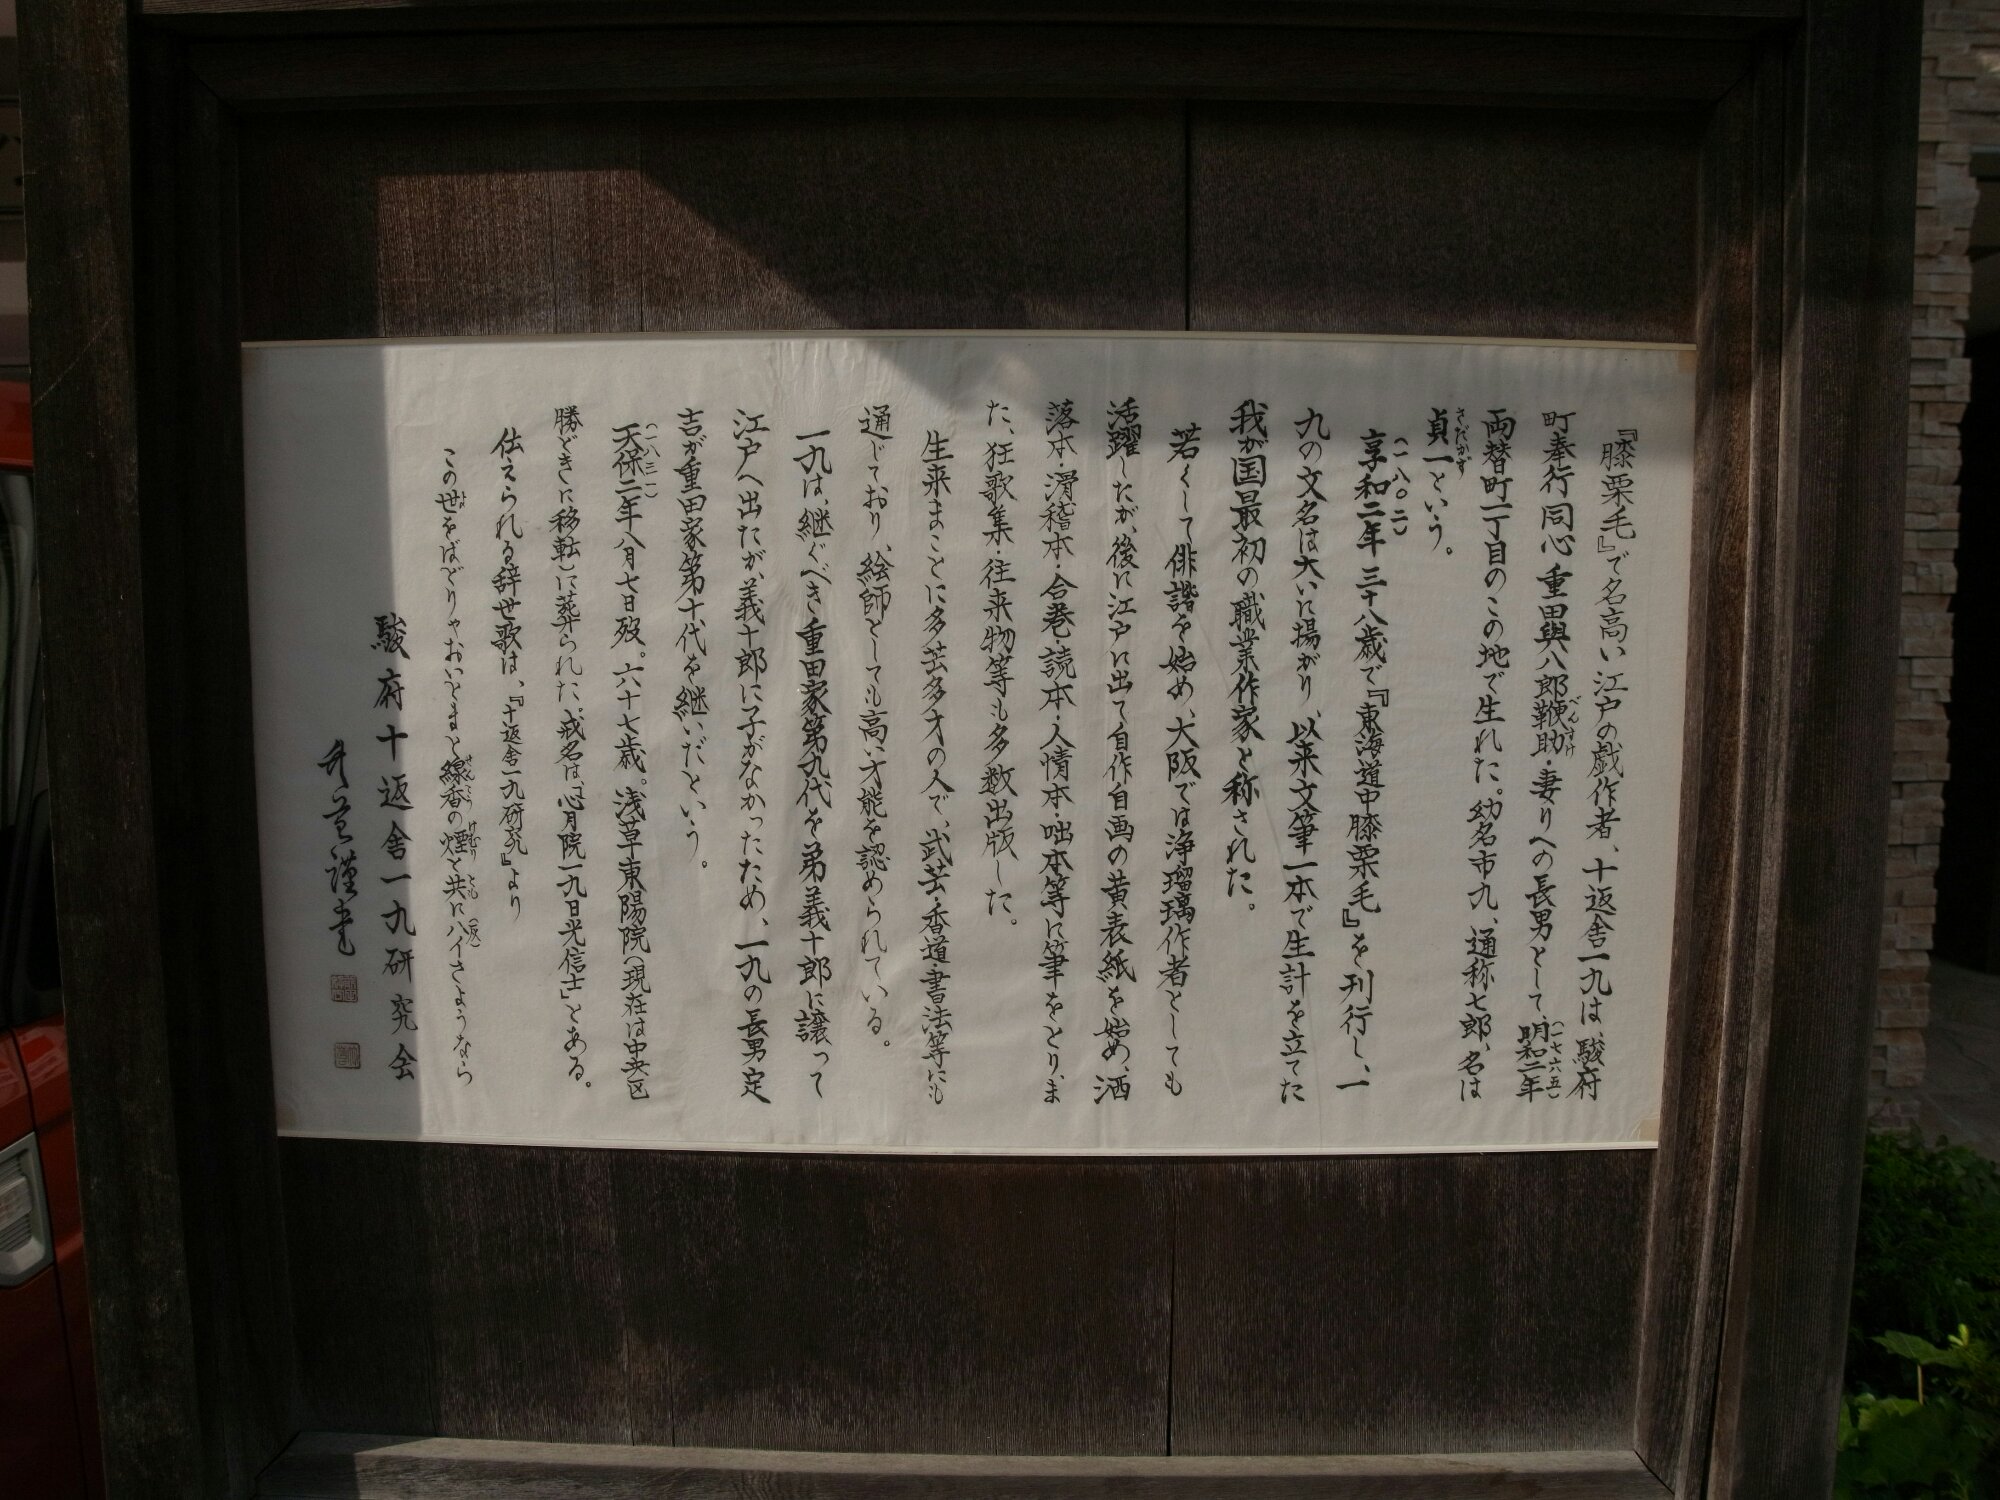 『膝栗毛』で名高い江戸の戯作者、十返舎一九は、駿府
町奉行同心重田與八郎鞭助・妻りへの長男として、明和二年
べんすけ
(一七六五)
両替町一丁目のこの地で生れた。幼名市九、通称七郎、名は
貞一という。
さだかず
享和二年三十八歳で『東海道中膝栗毛』を刊行し、一
(一八〇二)
九の文名は大いに揚がり、以来文筆一本で生計を立てた
我が国最初の職業作家と称された。
若くして俳諧を始め、大阪では浄瑠璃作者としても
活躍したが、後に江戸に出て自作自画の黄表紙を始め、洒
落本・滑稽本・合巻・読本・人情本・咄本等に筆をとり、ま
た、狂歌集・往来物等も多数出版した。
生来まことに多芸多才の人で、武芸・香道・書法等にも
通じており、絵師としても高い才能を認められている。
一九は、継ぐべき重田家第九代を弟義十郎に譲って
江戸へ出たが、義十郎に子がなかったため、一九の長男定
吉が重田家第十代を継いだという。
天保二年八月七日歿。六十七歳。浅草東陽院(現在は中央区
(一八三一)
勝どきに移転)に葬られた。戒名は「心月院一九日光信士」とある。
伝えられる辞世歌は、『十返舎一九研究』より
この世をばどりゃおいとまと線香の煙と共にハイさようなら
よ せんこう けむり とも (灰)
駿府十返舎一九研究会
謹書